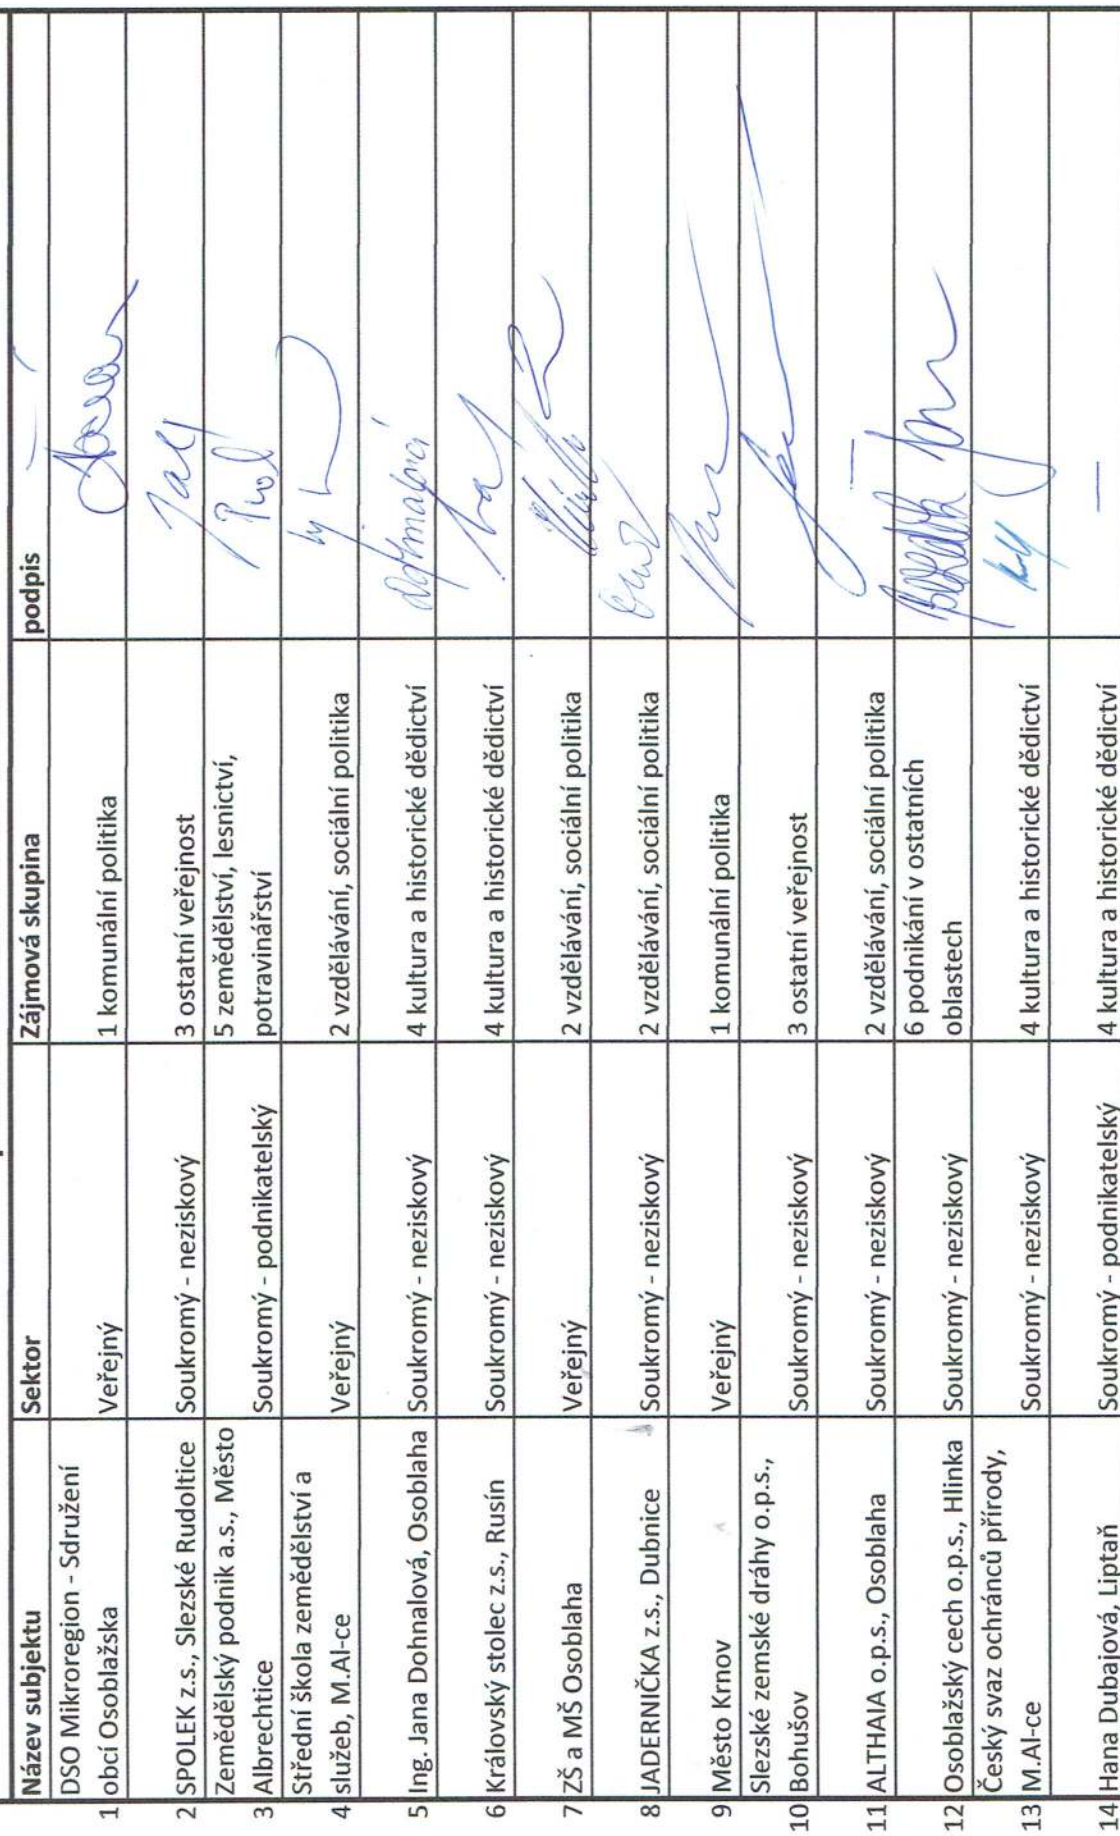 Název subjektu Sektor Zájmová skupina podpis
DSO Mikroregion - Sdružení
1 obcí Osoblažska Veřejný 1 komunální politika
2 SPOLEK z.s., Slezské Rudoltice Soukromý - neziskový 3 ostatní veřejnost
Zemědělský podnik a.s., Město 5 zemědělství, lesnictví,
3 Albrechtice Soukromý - podnikatelský potravinářství
Střední škola zemědělství a
4 služeb, M.Al-ce Veřejný 2 vzdělávání, sociální politika
5 Ing. Jana Dohnalová, Osoblaha Soukromý - neziskový 4 kultura a historické dědictví
6 Královský stolec z.s., Rusín Soukromý - neziskový 4 kultura a historické dědictví
7 ZŠ a MŠ Osoblaha Veřejný 2 vzdělávání, sociální politika
8 JADERNIČKA z.s., Dubnice Soukromý - neziskový 2 vzdělávání, sociální politika
9 Město Krnov Veřejný 1 komunální politika
Slezské zemské dráhy o.p.s.,
10 Bohušov Soukromý - neziskový 3 ostatní veřejnost
11 ALTHAIA o.p.s., Osoblaha Soukromý - neziskový 2 vzdělávání, sociální politika
6 podnikání v ostatních
12 Osoblažský cech o.p.s., Hlinka Soukromý - neziskový oblastech
Český svaz ochránců přírody,
13 M.Al-ce Soukromý - neziskový 4 kultura a historické dědictví
14 Hana Dubajová, Liptaň Soukromý - podnikatelský 4 kultura a historické dědictví